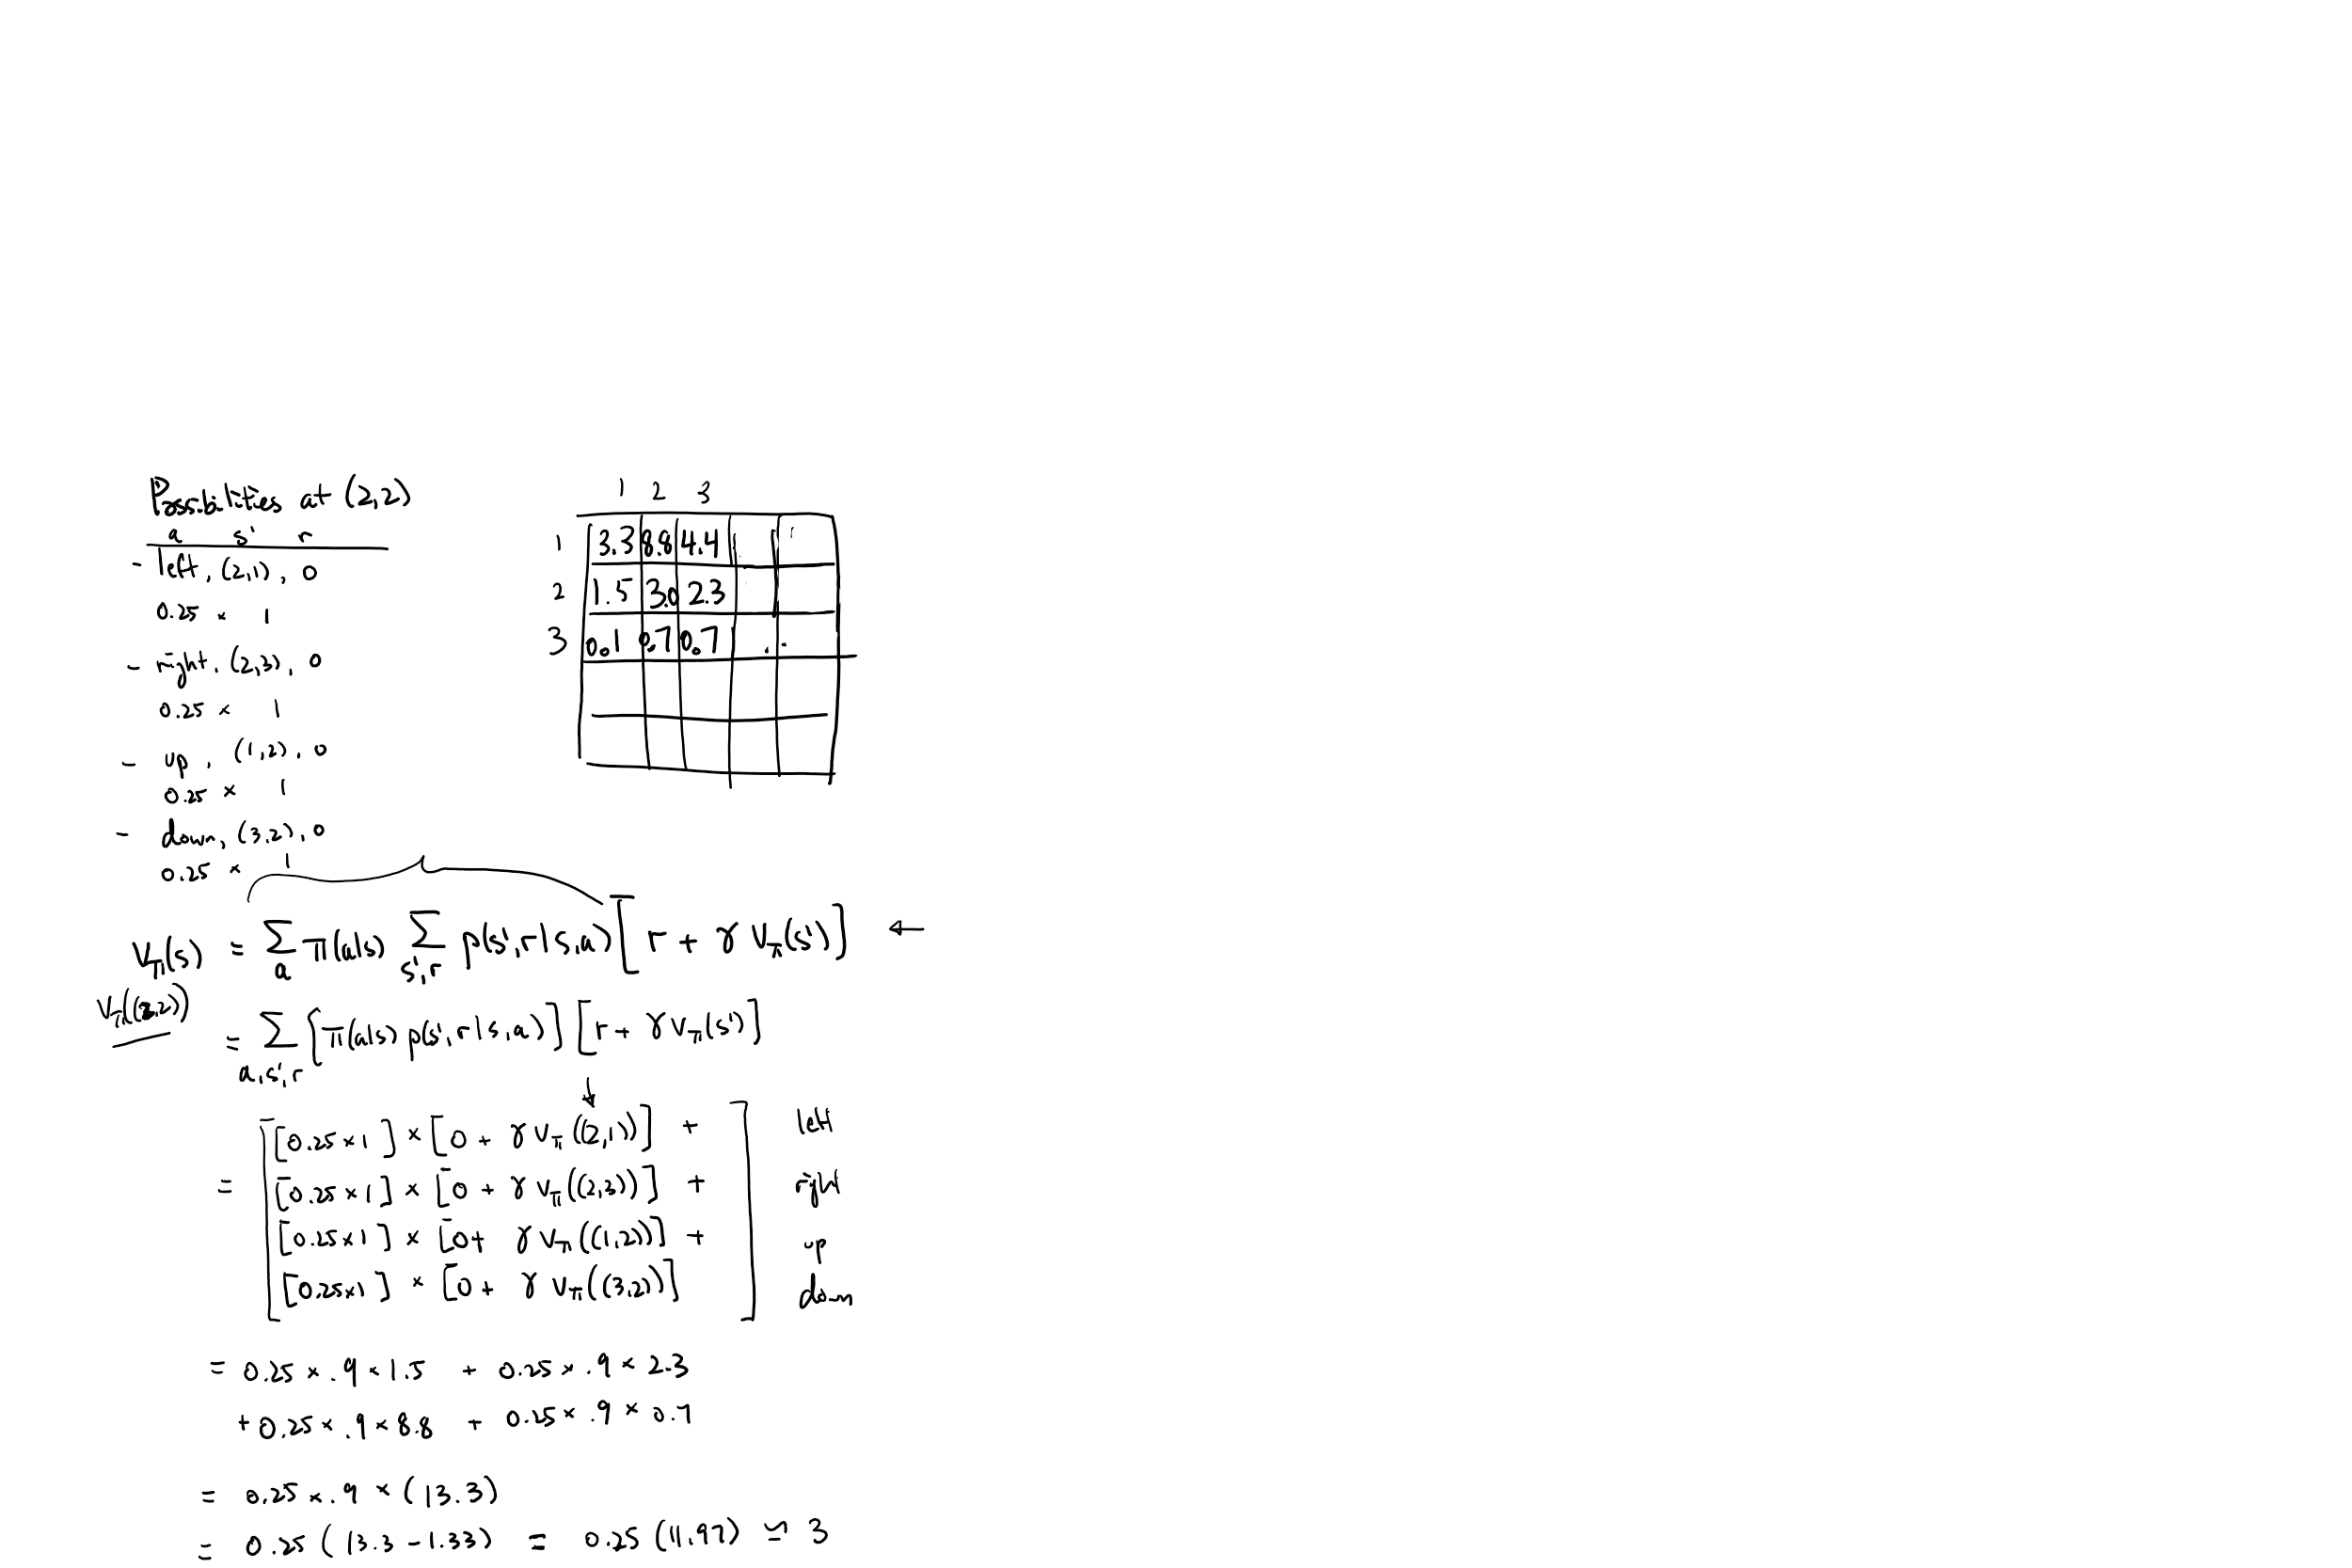 Possibilities at (2,2)
a s' r
- left, (2,1), 0
0.25 × 1
- right, (2,3), 0
0.25 × 1
- up, (1,2), 0
0.25 × 1
- down, (3,2), 0
0.25 × 1
1 2 3
1 3.3 8.8 4.4
2 1.5 3.0 2.3
3 0.1 0.7 0.7 ..
v_π(s) = Σ_a π(a|s) Σ_{s',r} p(s',r|s,a) [r + γ v_π(s')] ←
v_π((2,2))
= Σ_{a,s',r} [π(a|s) p(s',r|s,a)] [r + γ v_π(s')]
↓
[0.25×1] × [0 + γ v_π((2,1))] + left
= [0.25×1] × [0 + γ v_π((2,3))] + right
[0.25×1] × [0 + γ v_π((1,2))] + up
[0.25×1] × [0 + γ v_π((3,2))] down
= 0.25 × .9 × 1.5 + 0.25 × .9 × 2.3
+ 0.25 × .9 × 8.8 + 0.25 × .9 × 0.7
= 0.25 × .9 × (13.3)
= 0.25 (13.3 - 1.33) = 0.25 (11.97) ≃ 3